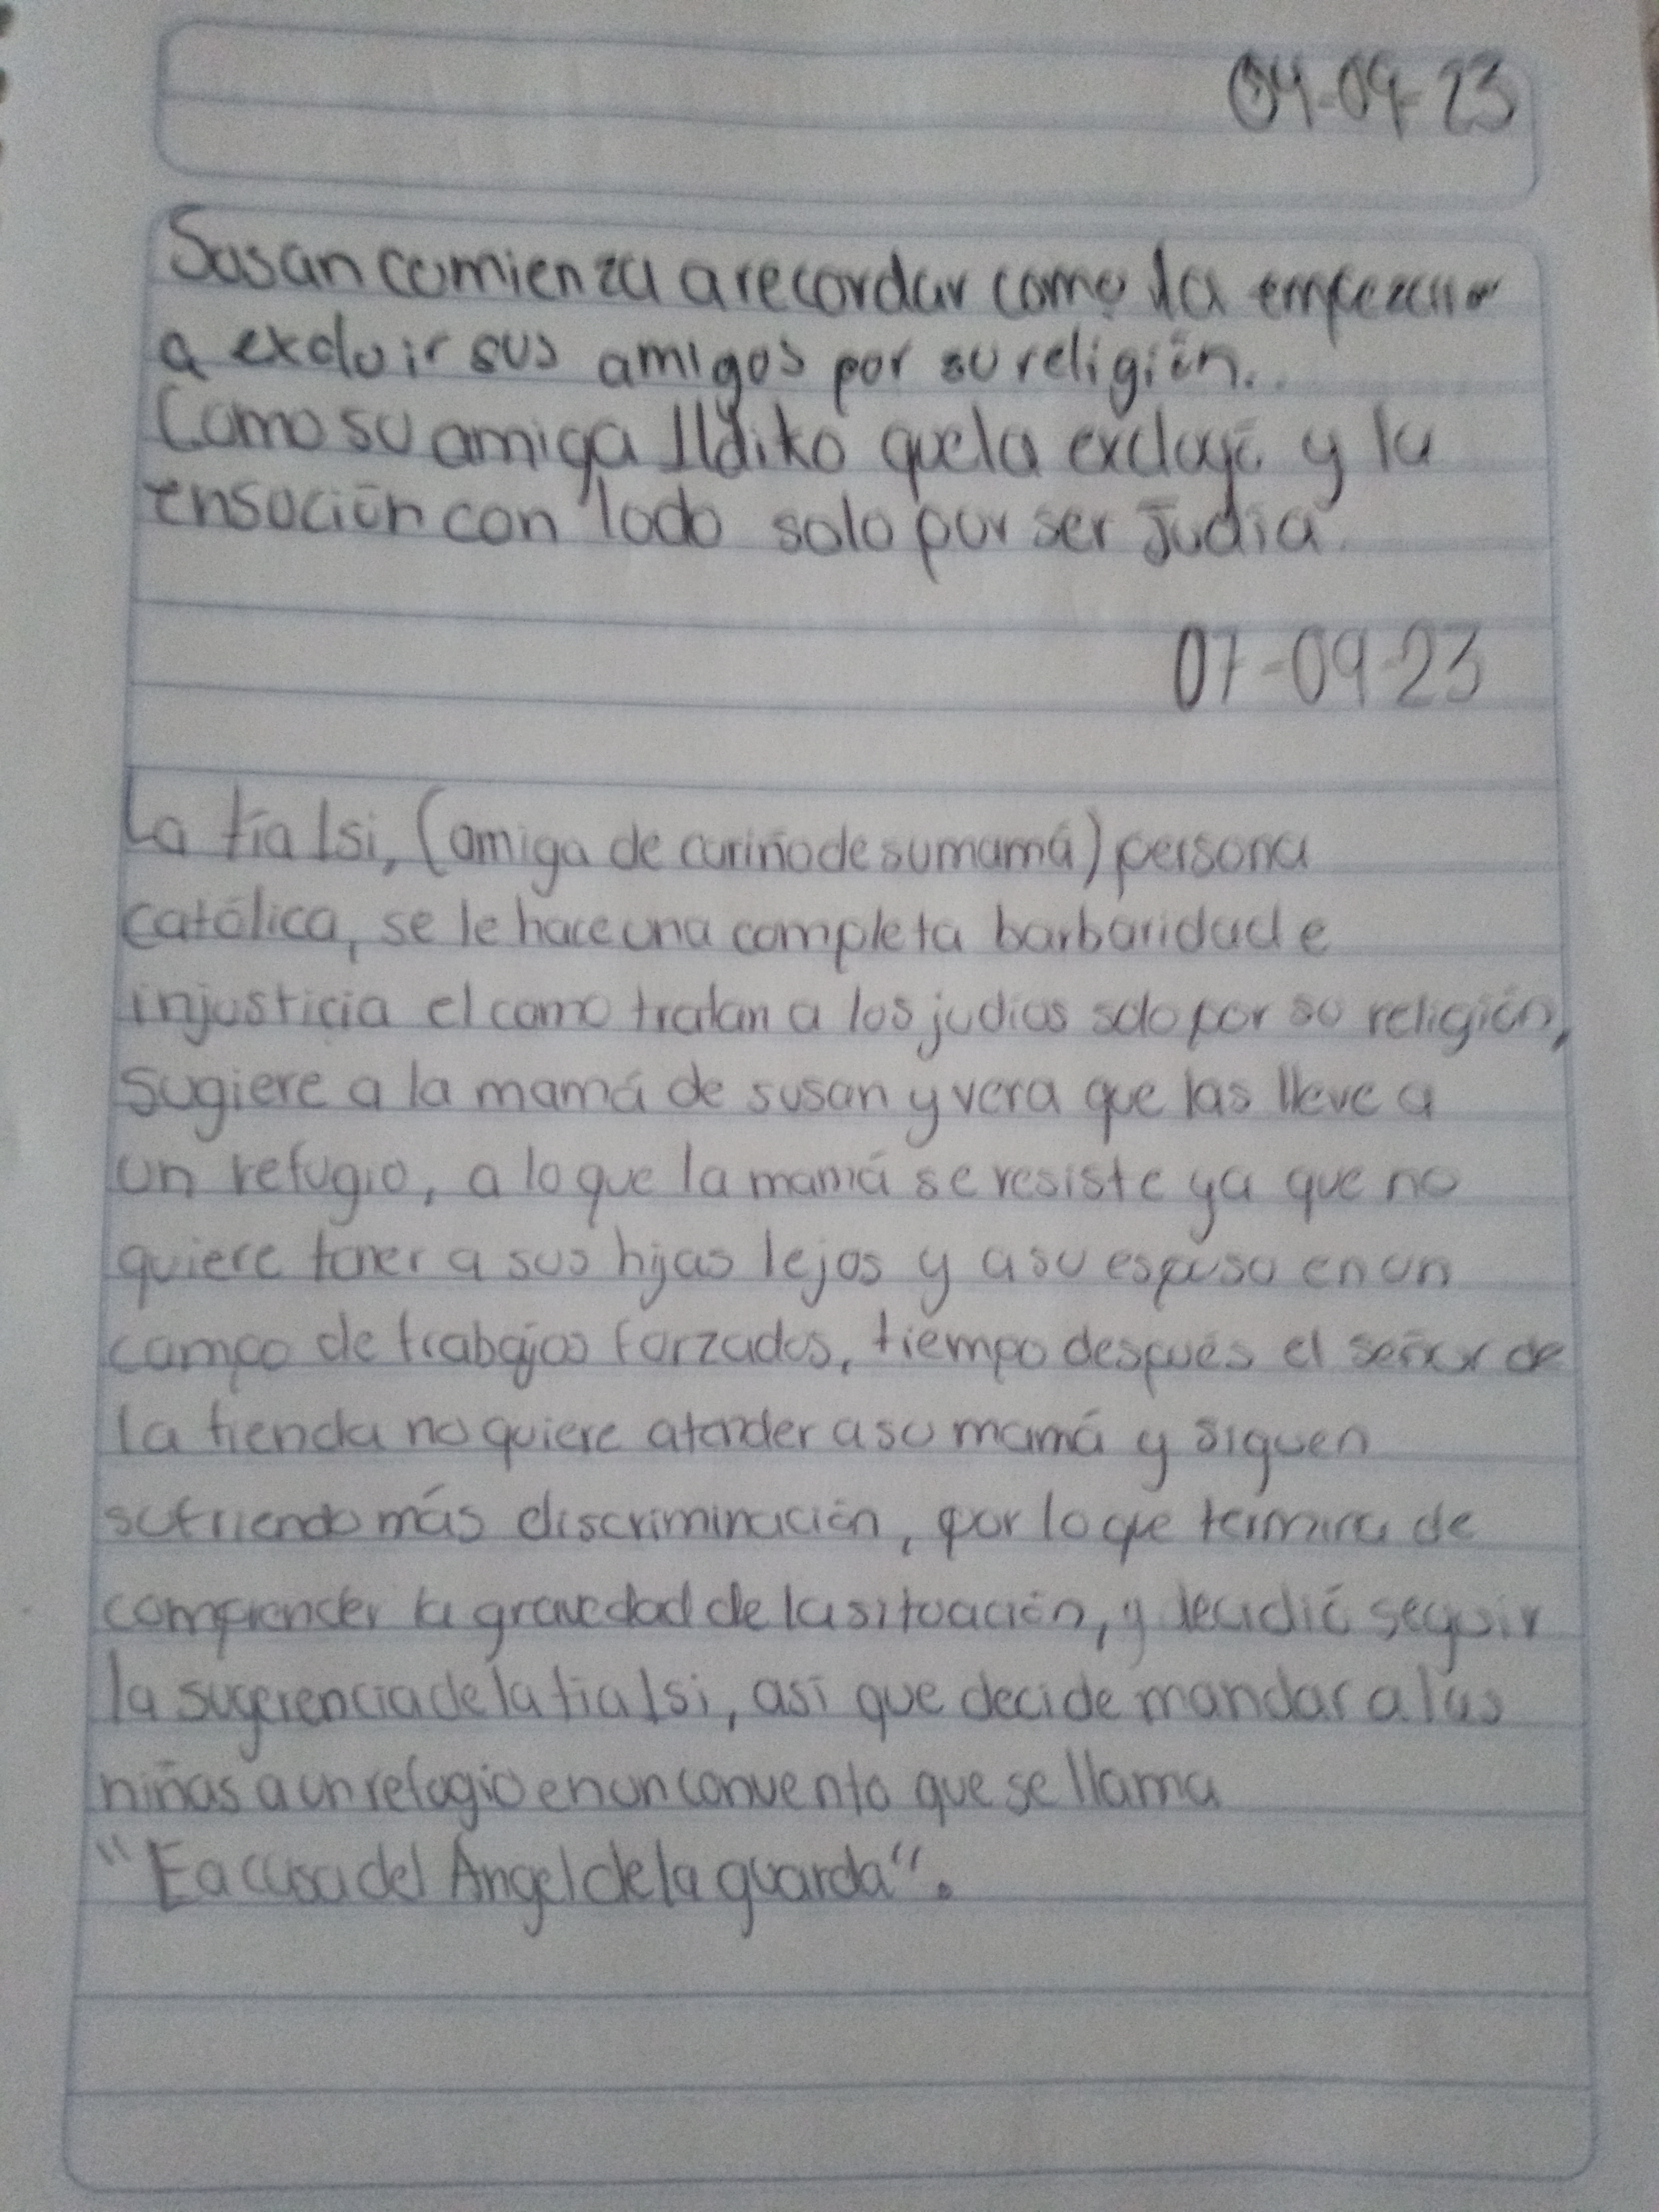 04-09-23
Susan comienza a recordar como la empezaron
a excluir sus amigos por su religión.
Como su amiga Ildiko que la excluyó y la
ensoción con lodo solo por ser Judía.
07-09-23
La tía Isi, (amiga de cariño de su mamá) persona
católica, se le hace una completa barbaridad e
injusticia el como tratan a los judios solo por su religión,
sugiere a la mamá de susan y vera que las lleve a
un refugio, a lo que la mamá se resiste ya que no
quiere tener a sus hijas lejos y a su esposo en un
campo de trabajos forzados, tiempo después el señor de
la tienda no quiere atender a su mamá y siguen
sufriendo más discriminación, por lo que termina de
comprender la gravedad de la situación, y decidió seguir
la sugerencia de la tia Isi, así que decide mandar a las
niñas a un refugio en un convento que se llama
"Ea casa del Ángel de la guarda".